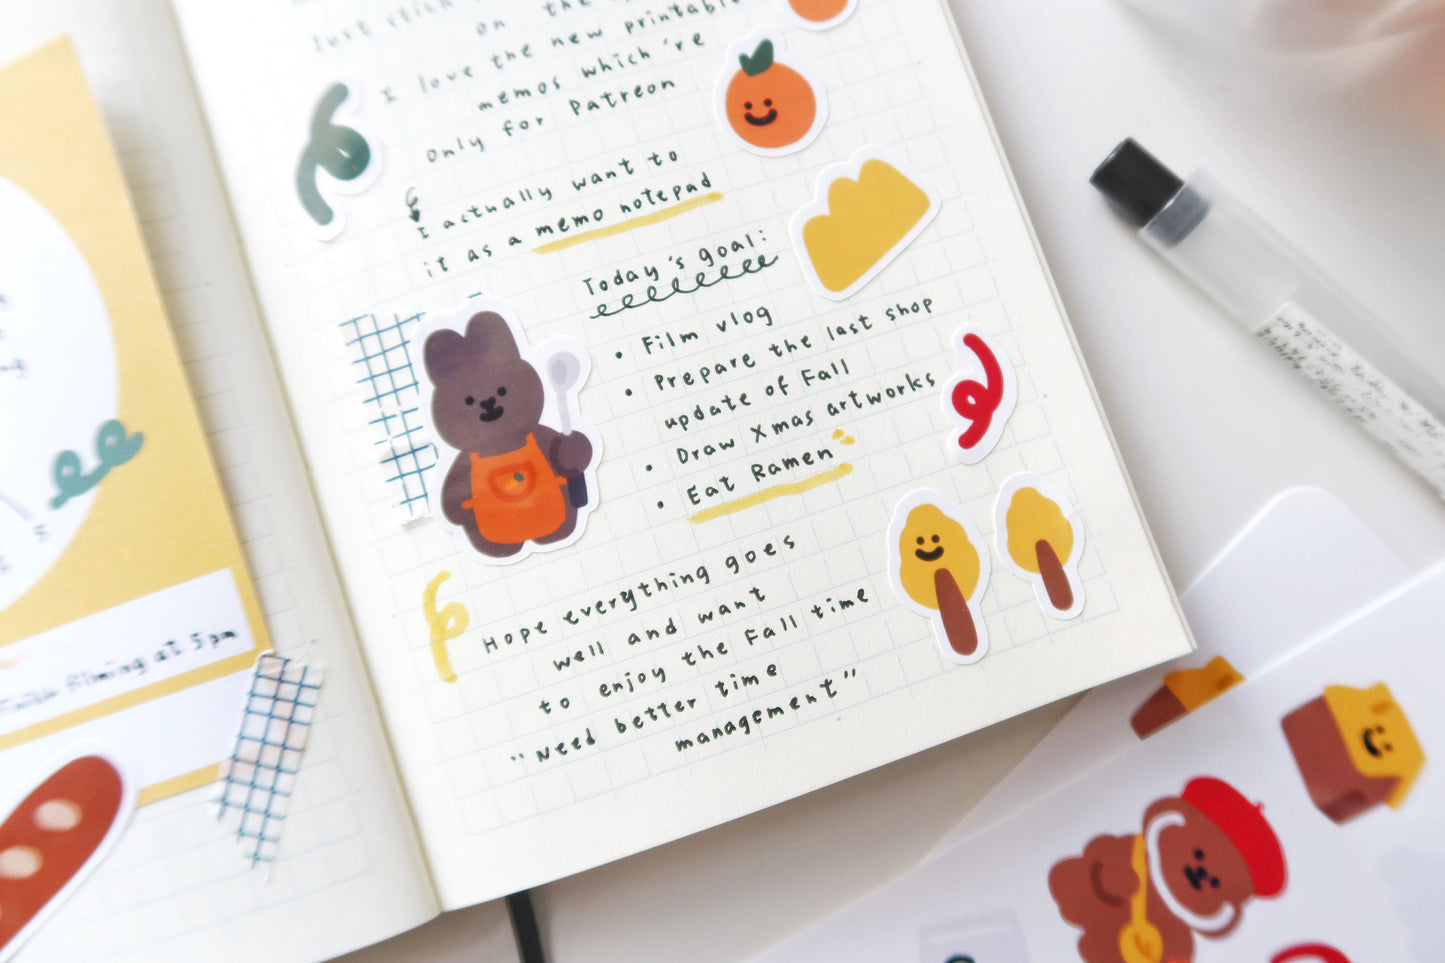 Just stick
on the
I love the new printable
memos which 're
only for Patreon
I actually want to
it as a memo notepad
Today's goal:
• Film vlog
• Prepare the last shop
update of Fall
• Draw Xmas artworks
• Eat Ramen
Hope everything goes
well and want
to enjoy the Fall time
"Need better time
management"
filming at 5pm